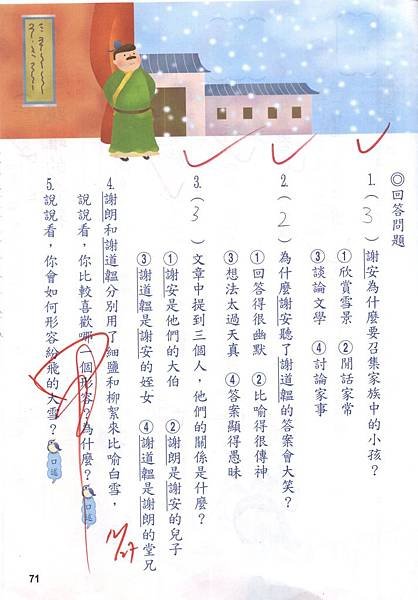 ◎回答問題
1.(3)謝安為什麼要召集家族中的小孩?
①欣賞雪景 ②閒話家常
③談論文學 ④討論家事
2.(2)為什麼謝安聽了謝道韞的答案會大笑?
①回答得很幽默 ②比喻得很傳神
③想法太過天真 ④答案顯得愚昧
3.(3)文章中提到三個人,他們的關係是什麼?
①謝安是他們的大伯 ②謝朗是謝安的兒子
③謝道韞是謝安的姪女 ④謝道韞是謝朗的堂兄
4.謝朗和謝道韞分別用了細鹽和柳絮來比喻白雪,
說說看,你比較喜歡哪一個形容?為什麼?口述
5.說說看,你會如何形容紛飛的大雪?口述
71